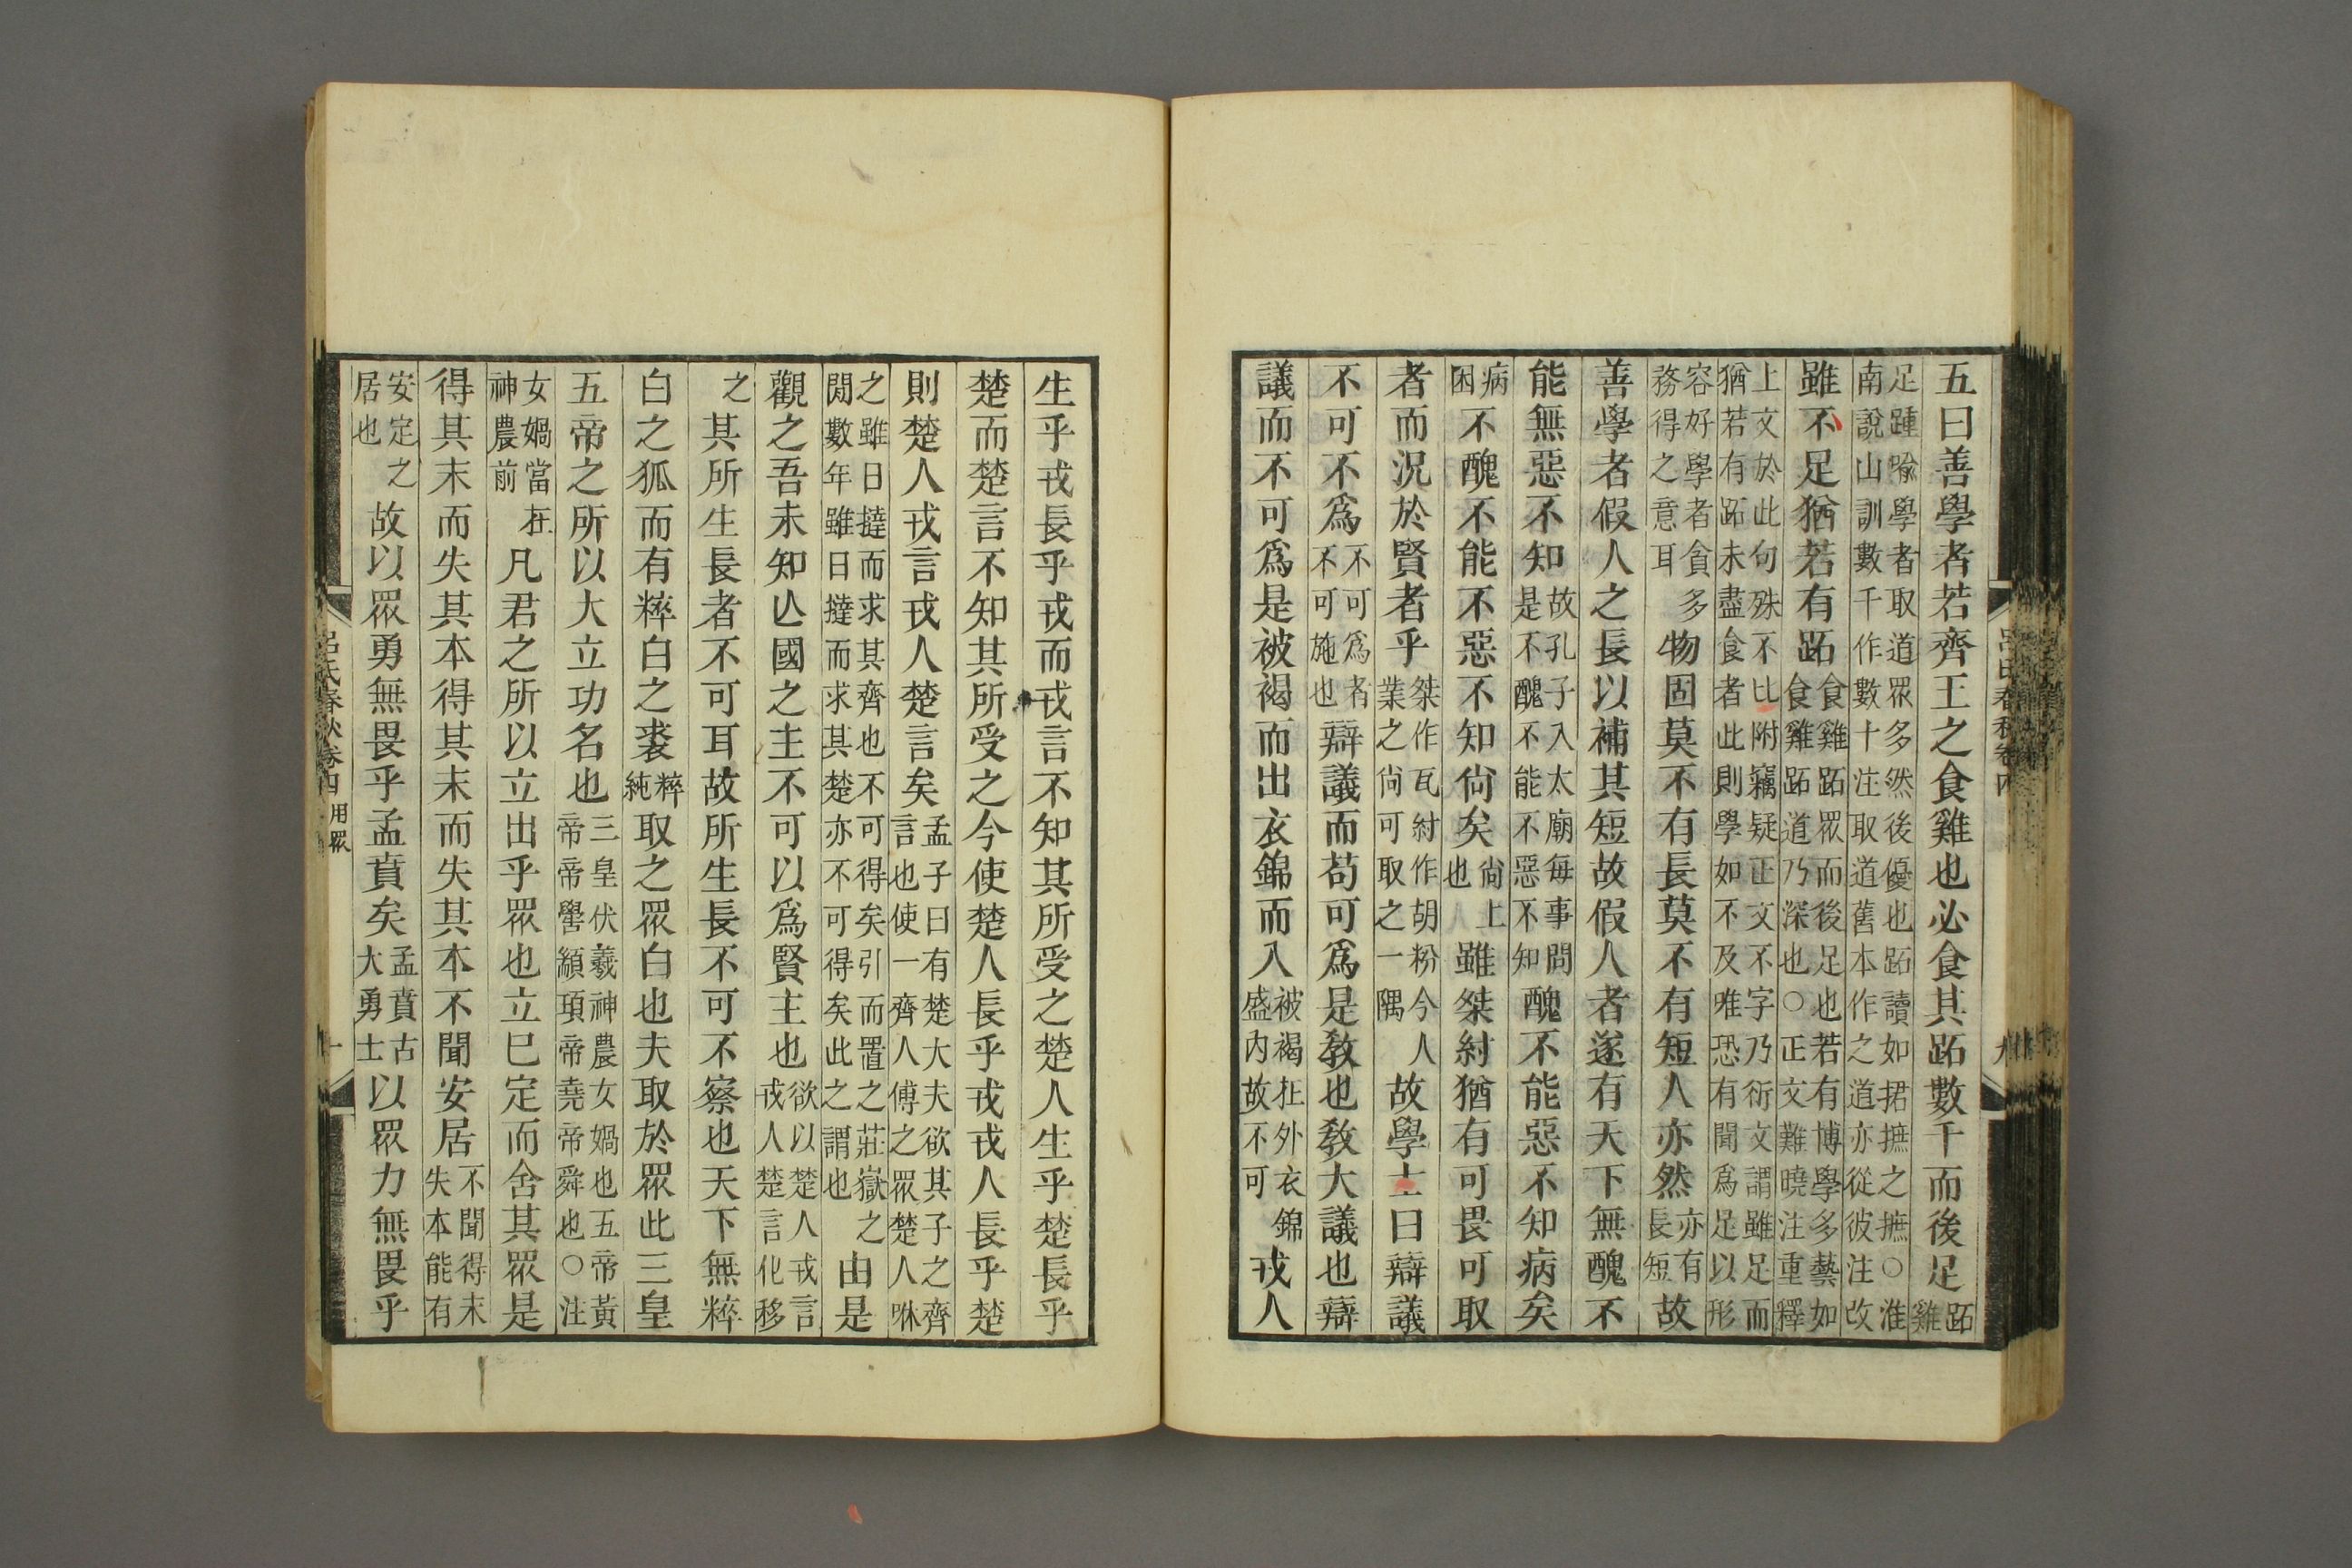 五曰善學者若齊王之食雞也必食其跖數千而後足跖雞
足踵喻學者取道眾多然後優也跖讀如捃摭之摭○淮
南說山訓數千作數十注取道舊本作之道亦從彼注改
雖不足猶若有跖食雞跖眾而後足也若有博學多藝如食雞跖道乃深也○正文難曉注重釋
上文於此句殊不比附竊疑正文不字乃衍文謂雖足而
猶若有跖未盡食者此則學如不及唯恐有聞爲足以形
容好學者貪多務得之意耳物固莫不有長莫不有短人亦然亦有長短故
善學者假人之長以補其短故假人者遂有天下無醜不
能無惡不知故孔子入太廟每事問是不醜不能不惡不知醜不能惡不知病矣
病困不醜不能不惡不知尙矣尙上也雖桀紂猶有可畏可取
者而況於賢者乎桀作瓦紂作胡粉今人業之尙可取之一隅故學士曰辯議
不可不爲不可爲者不可施也辯議而苟可爲是敎也敎大議也辯
議而不可爲是被褐而出衣錦而入被褐在外衣錦盛內故不可戎人
呂氏春秋卷四
九
生乎戎長乎戎而戎言不知其所受之楚人生乎楚長乎
楚而楚言不知其所受之今使楚人長乎戎戎人長乎楚
則楚人戎言戎人楚言矣孟子曰有楚大夫欲其子之齊言也使一齊人傅之眾楚人咻
之雖日撻而求其齊也不可得矣引而置之莊嶽之
閒數年雖日撻而求其楚亦不可得矣此之謂也由是
觀之吾未知亾國之主不可以爲賢主也欲以楚人戎言戎人楚言化移
之其所生長者不可耳故所生長不可不察也天下無粹
白之狐而有粹白之裘粹純取之眾白也夫取於眾此三皇
五帝之所以大立功名也三皇伏羲神農女媧也五帝黃帝帝嚳顓頊帝堯帝舜也○注
女媧當在神農前凡君之所以立出乎眾也立巳定而舍其眾是
得其末而失其本得其末而失其本不聞安居不聞得末失本能有
安定之居也故以眾勇無畏乎孟賁矣孟賁古大勇士以眾力無畏乎
呂氏春秋卷四 用眾
十